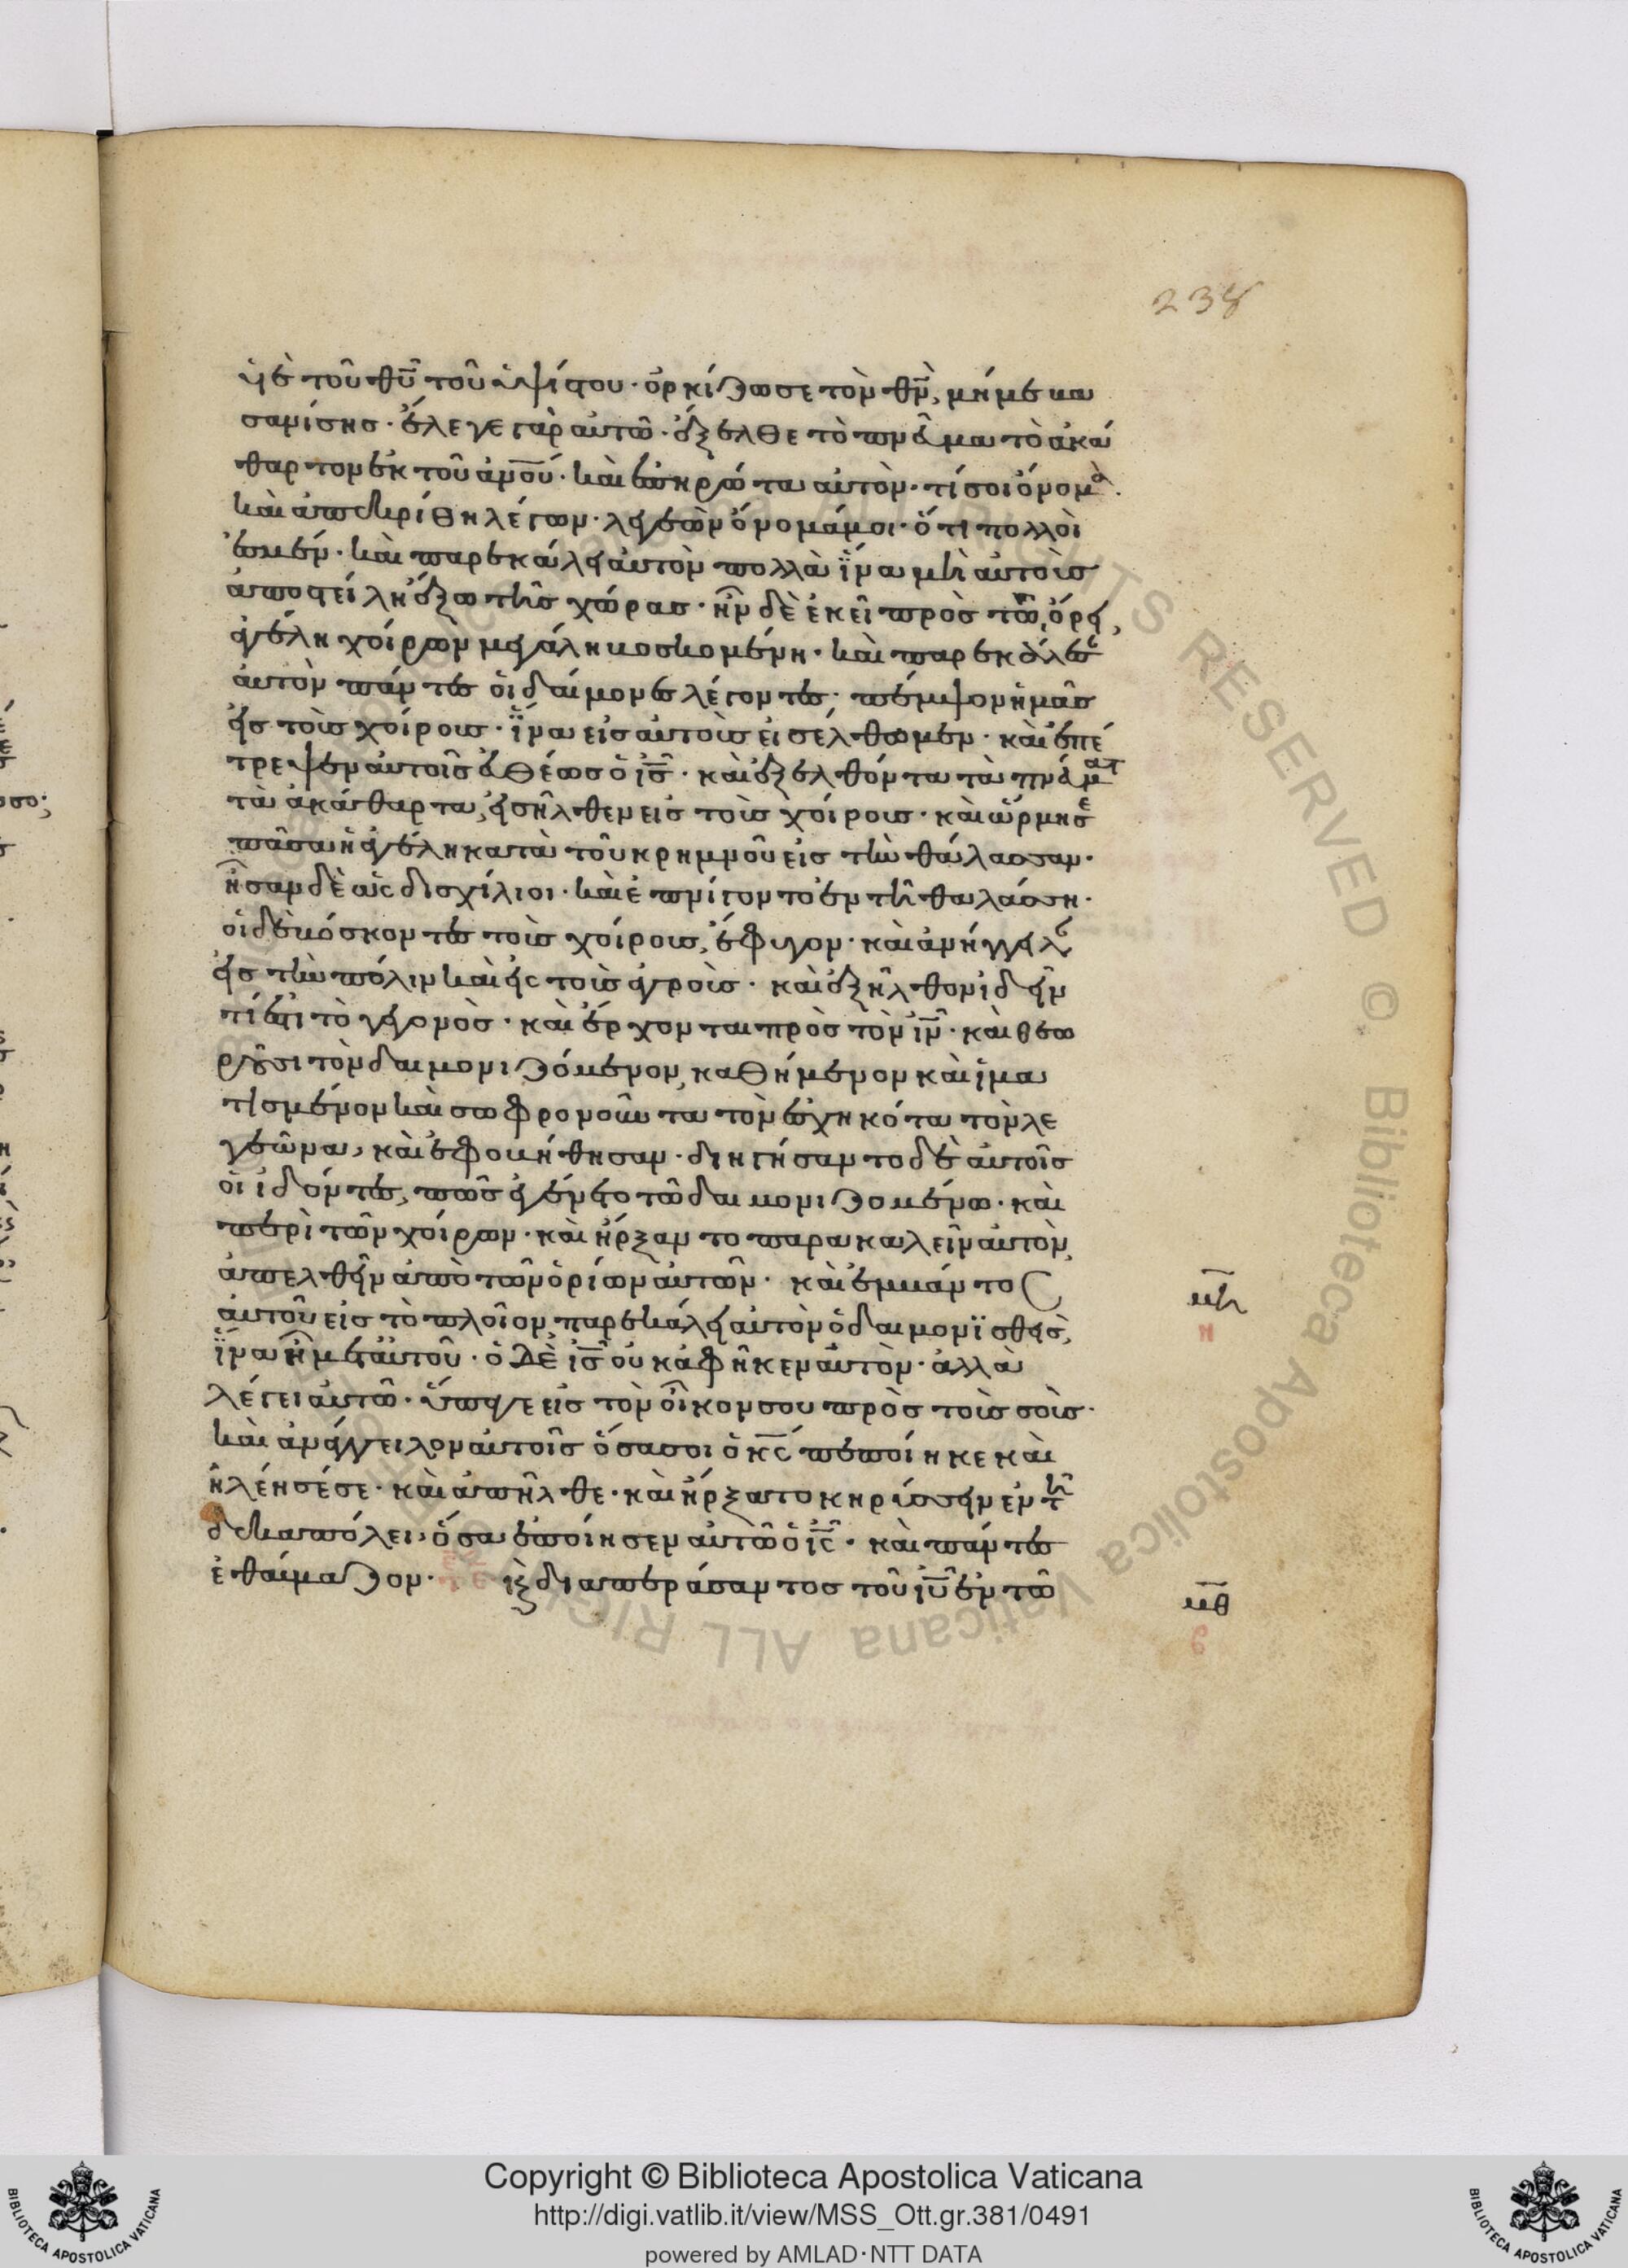 238
υἱὲ τοῦ θῡ τοῦ ὑψίστου· ὁρκίζω σε τὸν θν̄, μή με βα
σανίσης· ἔλεγε γὰρ αὐτῶ· ἔξελθε τὸ πνεῦμα τὸ ἀκά
θαρτον ἐκ τοῦ ἀνο̄υ· καὶ ἐπηρώτα αὐτὸν· τί σοι ὄνομα·
καὶ ἀπεκρίθη λέγων· λεγεὼν ὄνομά μοι· ὅτι πολλοὶ
ἐσμέν· καὶ παρεκάλει αὐτὸν πολλὰ ἵνα μὴ αὐτοὺς
ἀποστείλη ἔξω τῆς χώρας· ἦν δὲ ἐκεῖ πρὸς τῶ ὄρει,
ἀγέλη χοίρων μεγάλη βοσκομένη· καὶ παρεκάλεσ
αὐτὸν πάντες οἱ δαίμονες λέγοντες· πέμψον ἡμᾶς
εἰς τοὺς χοίρους· ἵνα εἰς αὐτοὺς εἰσέλθωμεν· καὶ ἐπέ
τρεψεν αὐτοῖς εὐθέως ὁ ις̄· καὶ ἐξελθόντα τὰ πνεύματ
τὰ ἀκάθαρτα, εἰσῆλθεν εἰς τοὺς χοίρους· καὶ ὥρμησε
πᾶσα ἡ ἀγέλη κατὰ τοῦ κρημνοῦ εἰς τὴν θάλασσαν·
ἦσαν δὲ ὡς δισχίλιοι· καὶ ἐπνίγοντο ἐν τῆ θαλάσση·
οἱ δὲ βόσκοντες τοὺς χοίρους, ἔφυγον· καὶ ἀνήγγειλ
εἰς τὴν πόλιν καὶ εἰς τοὺς ἀγροὺς· καὶ ἐξῆλθον ἰδεῖν
τί ἐστι τὸ γεγονὸς· καὶ ἔρχονται πρὸς τὸν ιν̄· καὶ θεω
ροῦσι τὸν δαιμονιζόμενον, καθήμενον καὶ ἱμα
τισμένον καὶ σωφρονοῦντα τὸν ἐσχηκότα τὸν λε
γεῶνα, καὶ ἐφοβήθησαν· διηγήσαντο δὲ αὐτοῖς
οἱ ἰδόντες, πῶς ἐγένετο τῶ δαιμονιζομένω· καὶ
περὶ τῶν χοίρων· καὶ ἤρξαντο παρακαλεῖν αὐτὸν,
ἀπελθεῖν ἀπὸ τῶν ὁρίων αὐτῶν· καὶ ἐμβάντος
αὐτοῦ εἰς τὸ πλοῖον παρεκάλει αὐτὸν ὁ δαιμονϊσθεὶς,
ἵνα ἦ μετ αὐτοῦ· ὁ δὲ ις̄ οὐκ ἀφῆκεν αὐτὸν· ἀλλὰ
λέγει αὐτῶ· ὕπαγε εἰς τὸν οἶκον σου πρὸς τοὺς σοὺς·
καὶ ἀνάγγειλον αὐτοῖς ὅσα σοι ὁ κς̄ πεποίηκε καὶ
ἠλέησέ σε· καὶ ἀπῆλθε· καὶ ἤρξατο κηρύσσειν ἐν τῆ
δεκαπόλει· ὅσα ἐποίησεν αὐτῶ ὁ ις̄· καὶ πάντες
ἐθαύμαζον· ιξ διαπεράσαντος τοῦ ιῡ ἐν τῶ
μη
η
μθ
Copyright © Biblioteca Apostolica Vaticana
http://digi.vatlib.it/view/MSS_Ott.gr.381/0491
powered by AMLAD·NTT DATA
BIBLIOTECA APOSTOLICA VATICANA
BIBLIOTECA APOSTOLICA VATICANA